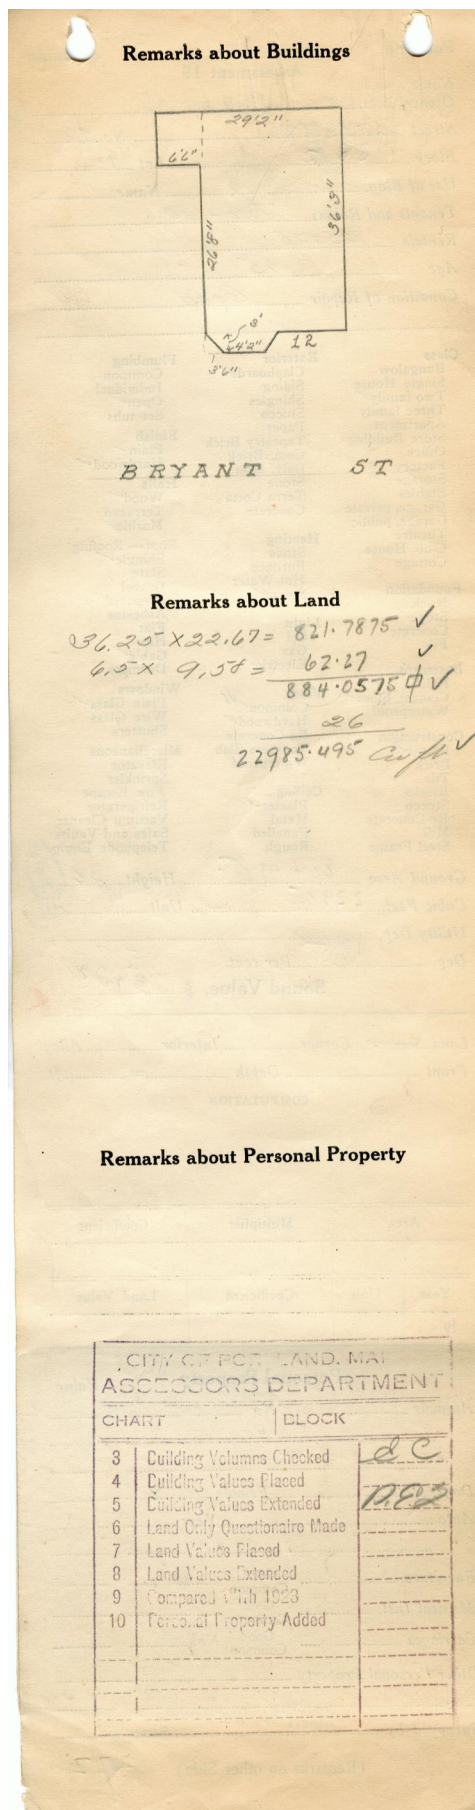 Remarks about Buildings
29'2"
6'6"
36'3"
26'8"
3'
4'2"
12
3'6"
BRYANT ST
Remarks about Land
36.25 X 22.67 = 821.7875 ✓
6.5 X 9.58 = 62.27 ✓
884.0575 ⏀ ✓
26
22985.495 Cu ft ✓
Remarks about Personal Property
CITY OF PORTLAND, MAI
ASSESSORS DEPARTMENT
CHART BLOCK
3 Building Volumns Checked
4 Building Values Placed
5 Building Values Extended
6 Land Only Questionaire Made
7 Land Values Placed
8 Land Values Extended
9 Compared With 1923
10 Personal Property Added